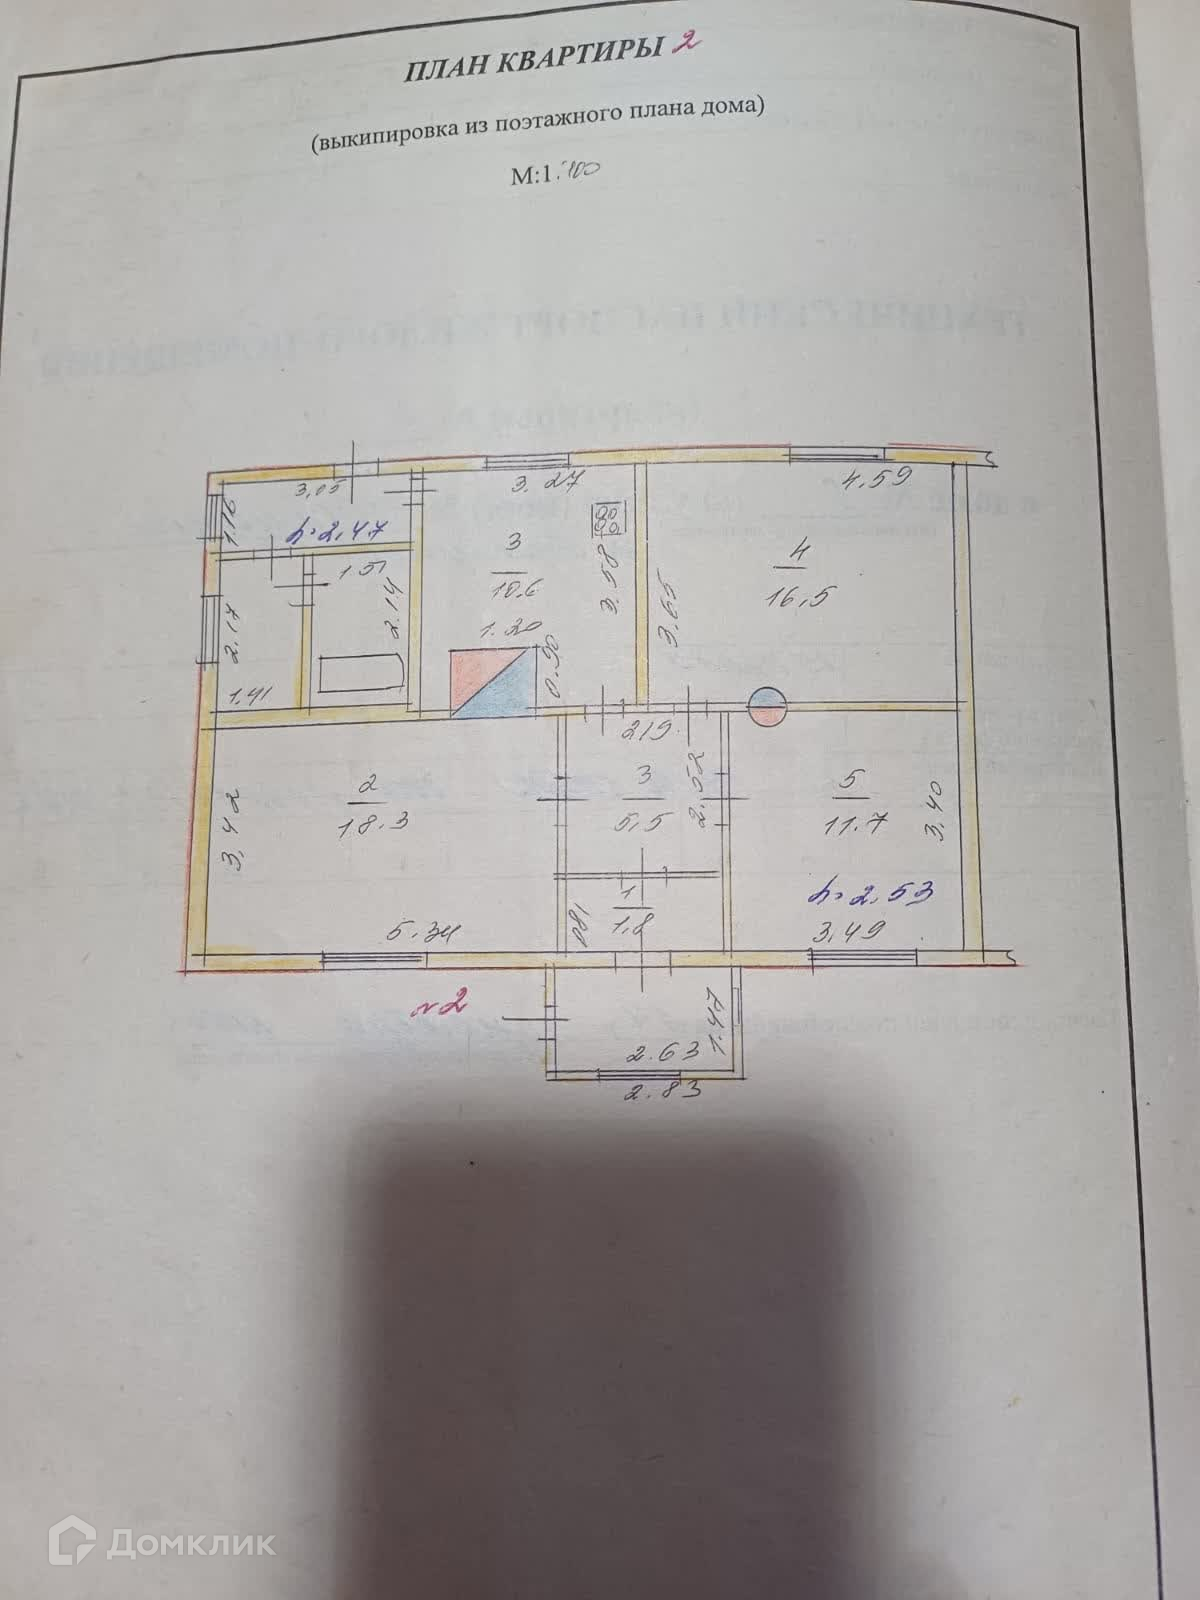 ПЛАН КВАРТИРЫ 2
(выкипировка из поэтажного плана дома)
М:1:100
3,05
3.27
4,59
1.16
h=2,47
3
10.6
3.58
4
16,5
3,65
1.51
2.14
2.17
1.20
0.90
1.41
2
18.3
3,42
2,19
3
5,5
2.52
5
11.7
3,40
h=2,53
3,49
5.34
1
1,8
180
№2
1.47
2.63
2.83
Домклик